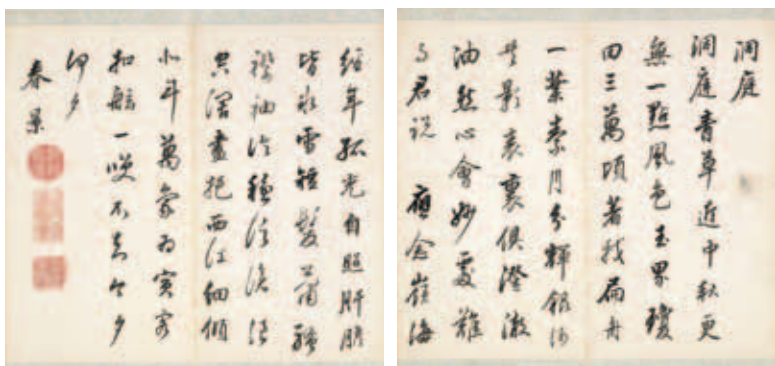 洞庭
洞庭青草近中秋更
無一點風色玉界瓊
田三萬頃著我扁舟
一葉素月分輝銀河
共影表裏俱澄澈
油然心會妙處難
与君説 應念嶺海
經年孤光自照肝膽
皆冰雪短髮蕭騷
襟袖冷穩泛滄浪
空濶盡挹西江細傾
北斗萬象為賓客
扣舷一咲不知今夕
何夕
春景